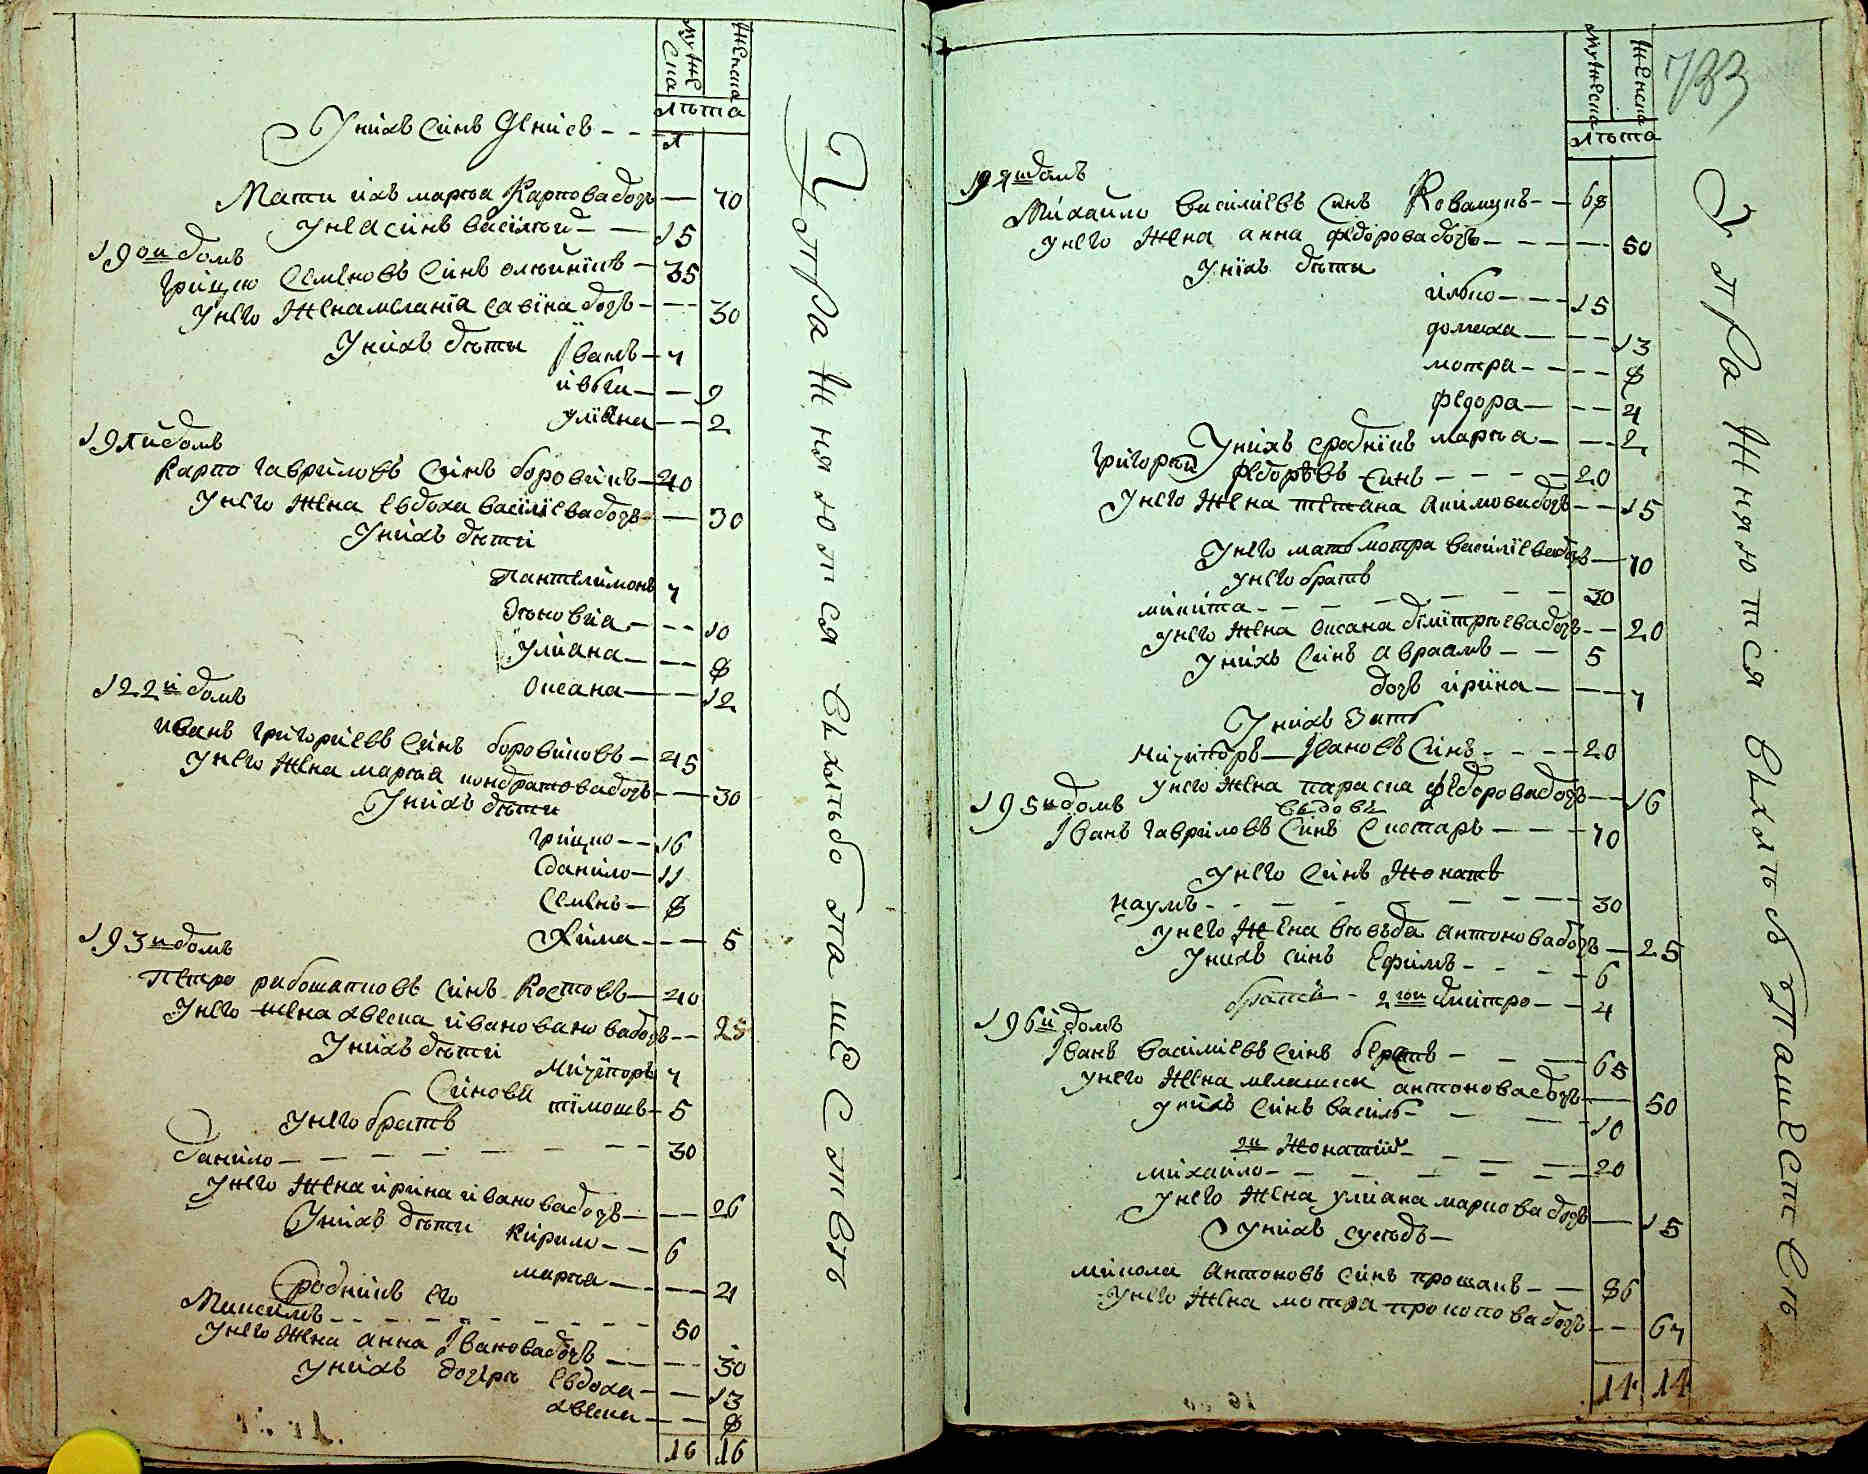 мужеска
женска
лѣта
У нихъ синъ Денисъ - - 1
Мати ихъ марѳа Карпова дочь — 70
у нея синъ василий - — 15
190й домъ
Грицко Семеновъ Синъ олѣйникъ — 35
У него Жена меланія савина дочь - — 30
У нихъ дѣти Іванъ — 7
ивга — — 9
уліана — — 2
191й домъ
Карпо гавриловъ Синъ боровикъ — 40
У него Жена евдоха василіева дочь — 30
У нихъ дѣти
Пантелимонъ 7
— — 10
Улияна — — — 8
Оксана — — 12
122й домъ
иванъ григориевъ Синъ боровиковъ — 45
У него Жена марѳа кондратова дочь — — 30
У нихъ дѣти
грицко — — 16
данило — 11
Семенъ — 8
Хима — — — 5
193й домъ
Петро синъ Костовъ — 40
У него жена дочь — — 25
У нихъ дѣти
Синовья 7
тімошъ — 5
У него братъ
данило — — — — — — — 30
У него Жена ирина иванова дочь — — — 26
У нихъ дѣти Кирило — — 6
марѳа — — — 4
Сродникъ его
Максимъ — — — — — — — 50
У него Жена анна Іванова дочь — — — 30
У нихъ дочери Евдоха — — 13
— — 8
16 16
Упражняются вхлѣбопашествѣ
733
мужеска
женска
лѣта
194й домъ
Михайло василиевъ синъ — — 68
У него Жена анна федорова дочь — — — — — 50
У нихъ дѣти
илько — — — 15
домаха — — — 13
мотра — — — — 8
федора — — — 4
марѳа — — — 2
У нихъ сродникъ
григорий федоровъ синъ — — — — 20
У него Жена тетяна акимова дочь — — 15
У него мать мотра василіева дочь — 70
у него братъ
микита — — — — — — — 30
У него Жена оксана димитриева дочь — — 20
У нихъ Синъ авраамъ — — 5
дочь ирина — — — 7
У нихъ Зять
Івановъ Синъ — — — — 20
У него Жена параска федорова дочь — — 16
195й домъ
вдовъ
Іванъ гавриловъ Синъ — — — — 70
У него Синъ Жонатъ
наумъ — — — — — — — — 30
У него Жена антонова дочь — 25
У нихъ синъ Ефимъ — — — — 6
2гой дмитро — — 4
196й домъ
Іванъ василиевъ Синъ — — — 65
У него Жена антонова дочь — — 50
у нихъ Синъ василь — — — 10
2й Жонатий — — — —
михайло — — — — — — — 20
У него Жена улиана маркова дочь — 15
У нихъ сусѣдъ —
микола антоновъ синъ — — 86
У него Жена мотра прокопова дочь — — 67
14 14
Упражняются вхлѣбопашествѣ